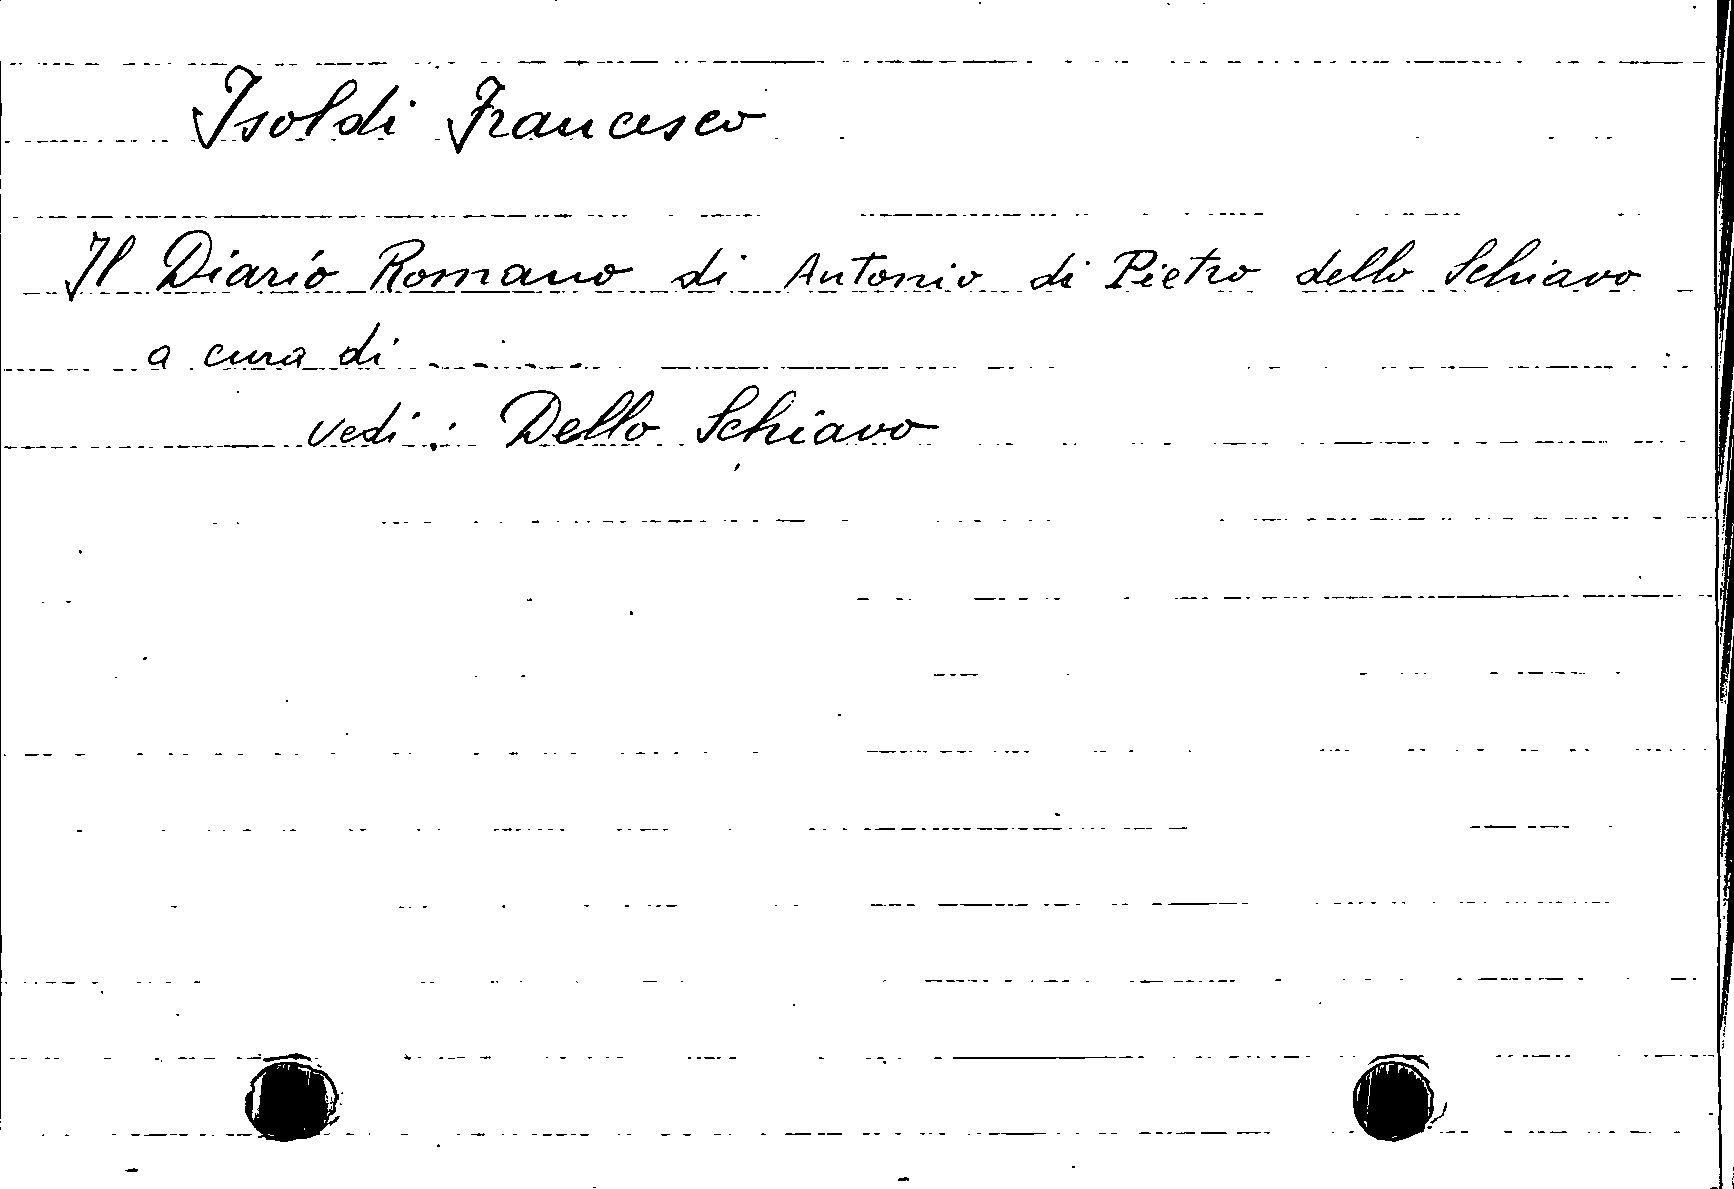 Isoldi Francesco
Il Diario Romano di Antonio di Pietro dello Schiavo
a cura di .......
vedi: Dello Schiavo